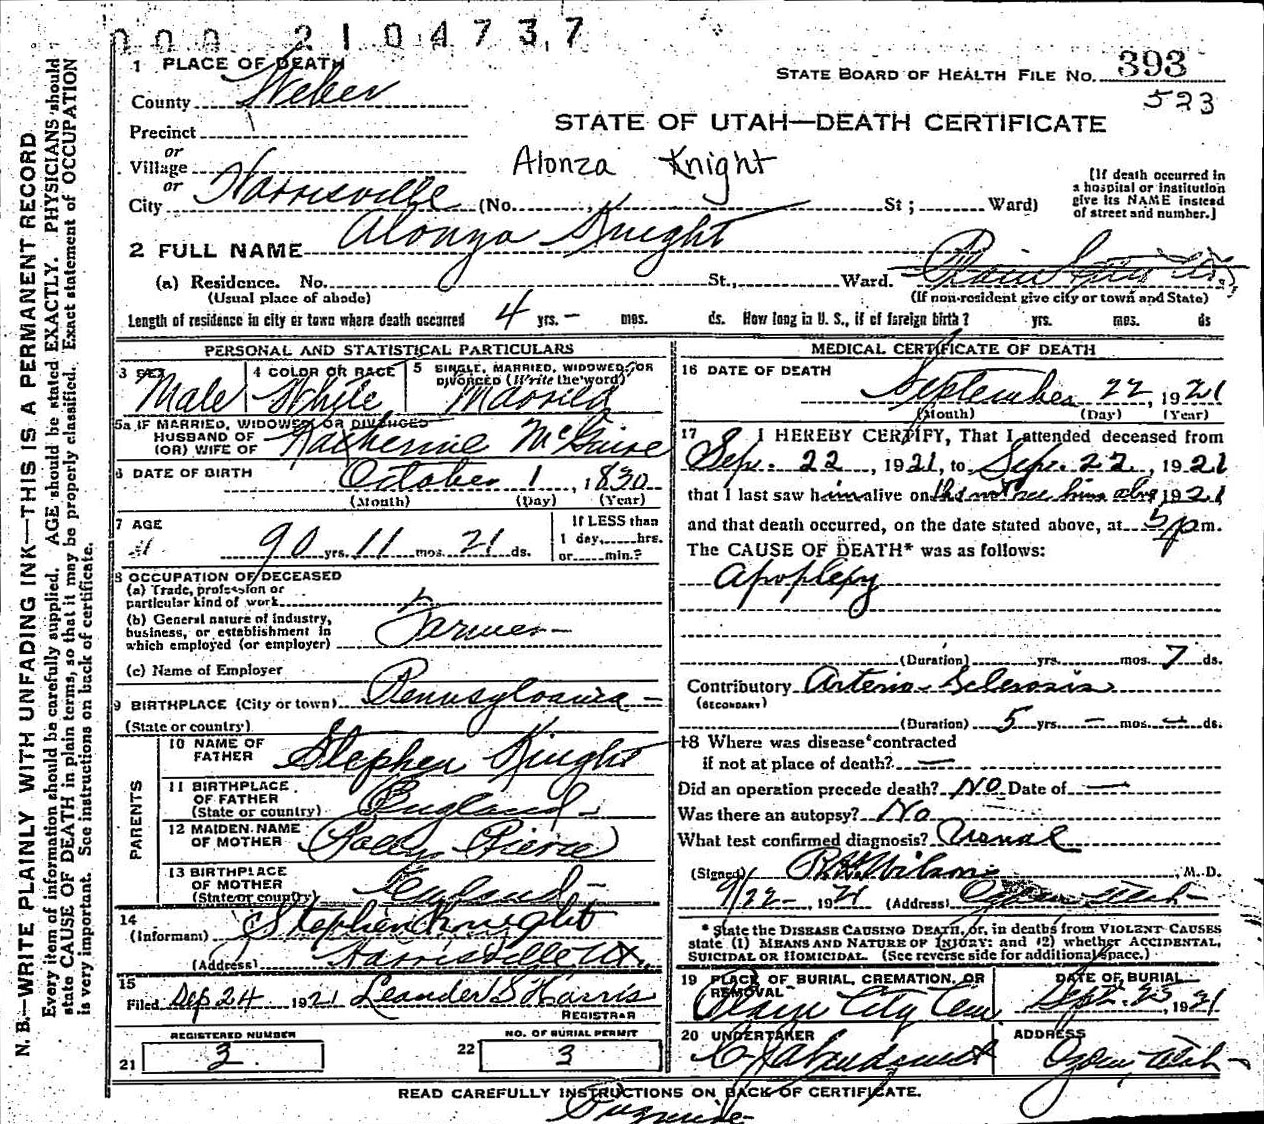 000 2104737
1 PLACE OF DEATH
STATE BOARD OF HEALTH FILE NO. 393
County Weber
523
Precinct
STATE OF UTAH—DEATH CERTIFICATE
or
Village
Alonza Knight
or
City Harrisville (No. St; Ward)
[If death occurred in
a hospital or institution
give its NAME instead
of street and number.]
2 FULL NAME Alonzo Knight
(a) Residence. No. St., Ward. Plain City
(Usual place of abode) (If non-resident give city or town and State)
Length of residence in city or town where death occurred 4 yrs. — mos. ds. How long in U. S., if of foreign birth? yrs. mos. ds
PERSONAL AND STATISTICAL PARTICULARS
3 SEX Male
4 COLOR OR RACE White
5 SINGLE, MARRIED, WIDOWED, OR
DIVORCED (Write the word) Married
5a IF MARRIED, WIDOWED, OR DIVORCED
HUSBAND OF
(OR) WIFE OF Katherine McGuire
6 DATE OF BIRTH October 1, 1830
(Month) (Day) (Year)
7 AGE
90 yrs. 11 mos. 21 ds.
If LESS than
1 day, hrs.
or min.?
8 OCCUPATION OF DECEASED
(a) Trade, profession or
particular kind of work
(b) General nature of industry,
business, or establishment in
which employed (or employer) Farmer
(c) Name of Employer
9 BIRTHPLACE (City or town) Pennsylvania
(State or country)
PARENTS
10 NAME OF
FATHER Stephen Knight
11 BIRTHPLACE
OF FATHER
(State or country) England
12 MAIDEN NAME
OF MOTHER Pierce
13 BIRTHPLACE
OF MOTHER
(State or country) England
14
(Informant) Stephen Knight
(Address) Harrisville Ut.
15
Filed Sep 24 1921 Leander S Harris
REGISTRAR
REGISTERED NUMBER
21 3
NO. OF BURIAL PERMIT
22 3
MEDICAL CERTIFICATE OF DEATH
16 DATE OF DEATH
September 22, 1921
(Month) (Day) (Year)
17 I HEREBY CERTIFY, That I attended deceased from
Sep. 22, 1921, to Sep. 22, 1921
that I last saw him alive on did not see him alive 1921
and that death occurred, on the date stated above, at 5 p m.
The CAUSE OF DEATH* was as follows:
Apoplexy
(Duration) yrs. mos. 7 ds.
Contributory Arterio-Sclerosis
(SECONDARY)
(Duration) 5 yrs. — mos. — ds.
18 Where was disease contracted
if not at place of death? —
Did an operation precede death? No Date of —
Was there an autopsy? No
What test confirmed diagnosis? Usual
(Signed) Wilson, M. D.
9/22 — 1921 (Address) Ogden Utah
* State the DISEASE CAUSING DEATH, or, in deaths from VIOLENT CAUSES
state (1) MEANS AND NATURE OF INJURY: and (2) whether ACCIDENTAL,
SUICIDAL OR HOMICIDAL. (See reverse side for additional space.)
19 PLACE OF BURIAL, CREMATION, OR
REMOVAL
Plain City Cem
DATE OF BURIAL
Sept. 25, 1921
20 UNDERTAKER
ADDRESS
Ogden, Utah
READ CAREFULLY INSTRUCTIONS ON BACK OF CERTIFICATE.
N. B.—WRITE PLAINLY WITH UNFADING INK—THIS IS A PERMANENT RECORD
Every item of information should be carefully supplied. AGE should be stated EXACTLY. PHYSICIANS should
state CAUSE OF DEATH in plain terms, so that it may be properly classified. Exact statement of OCCUPATION
is very important. See instructions on back of certificate.